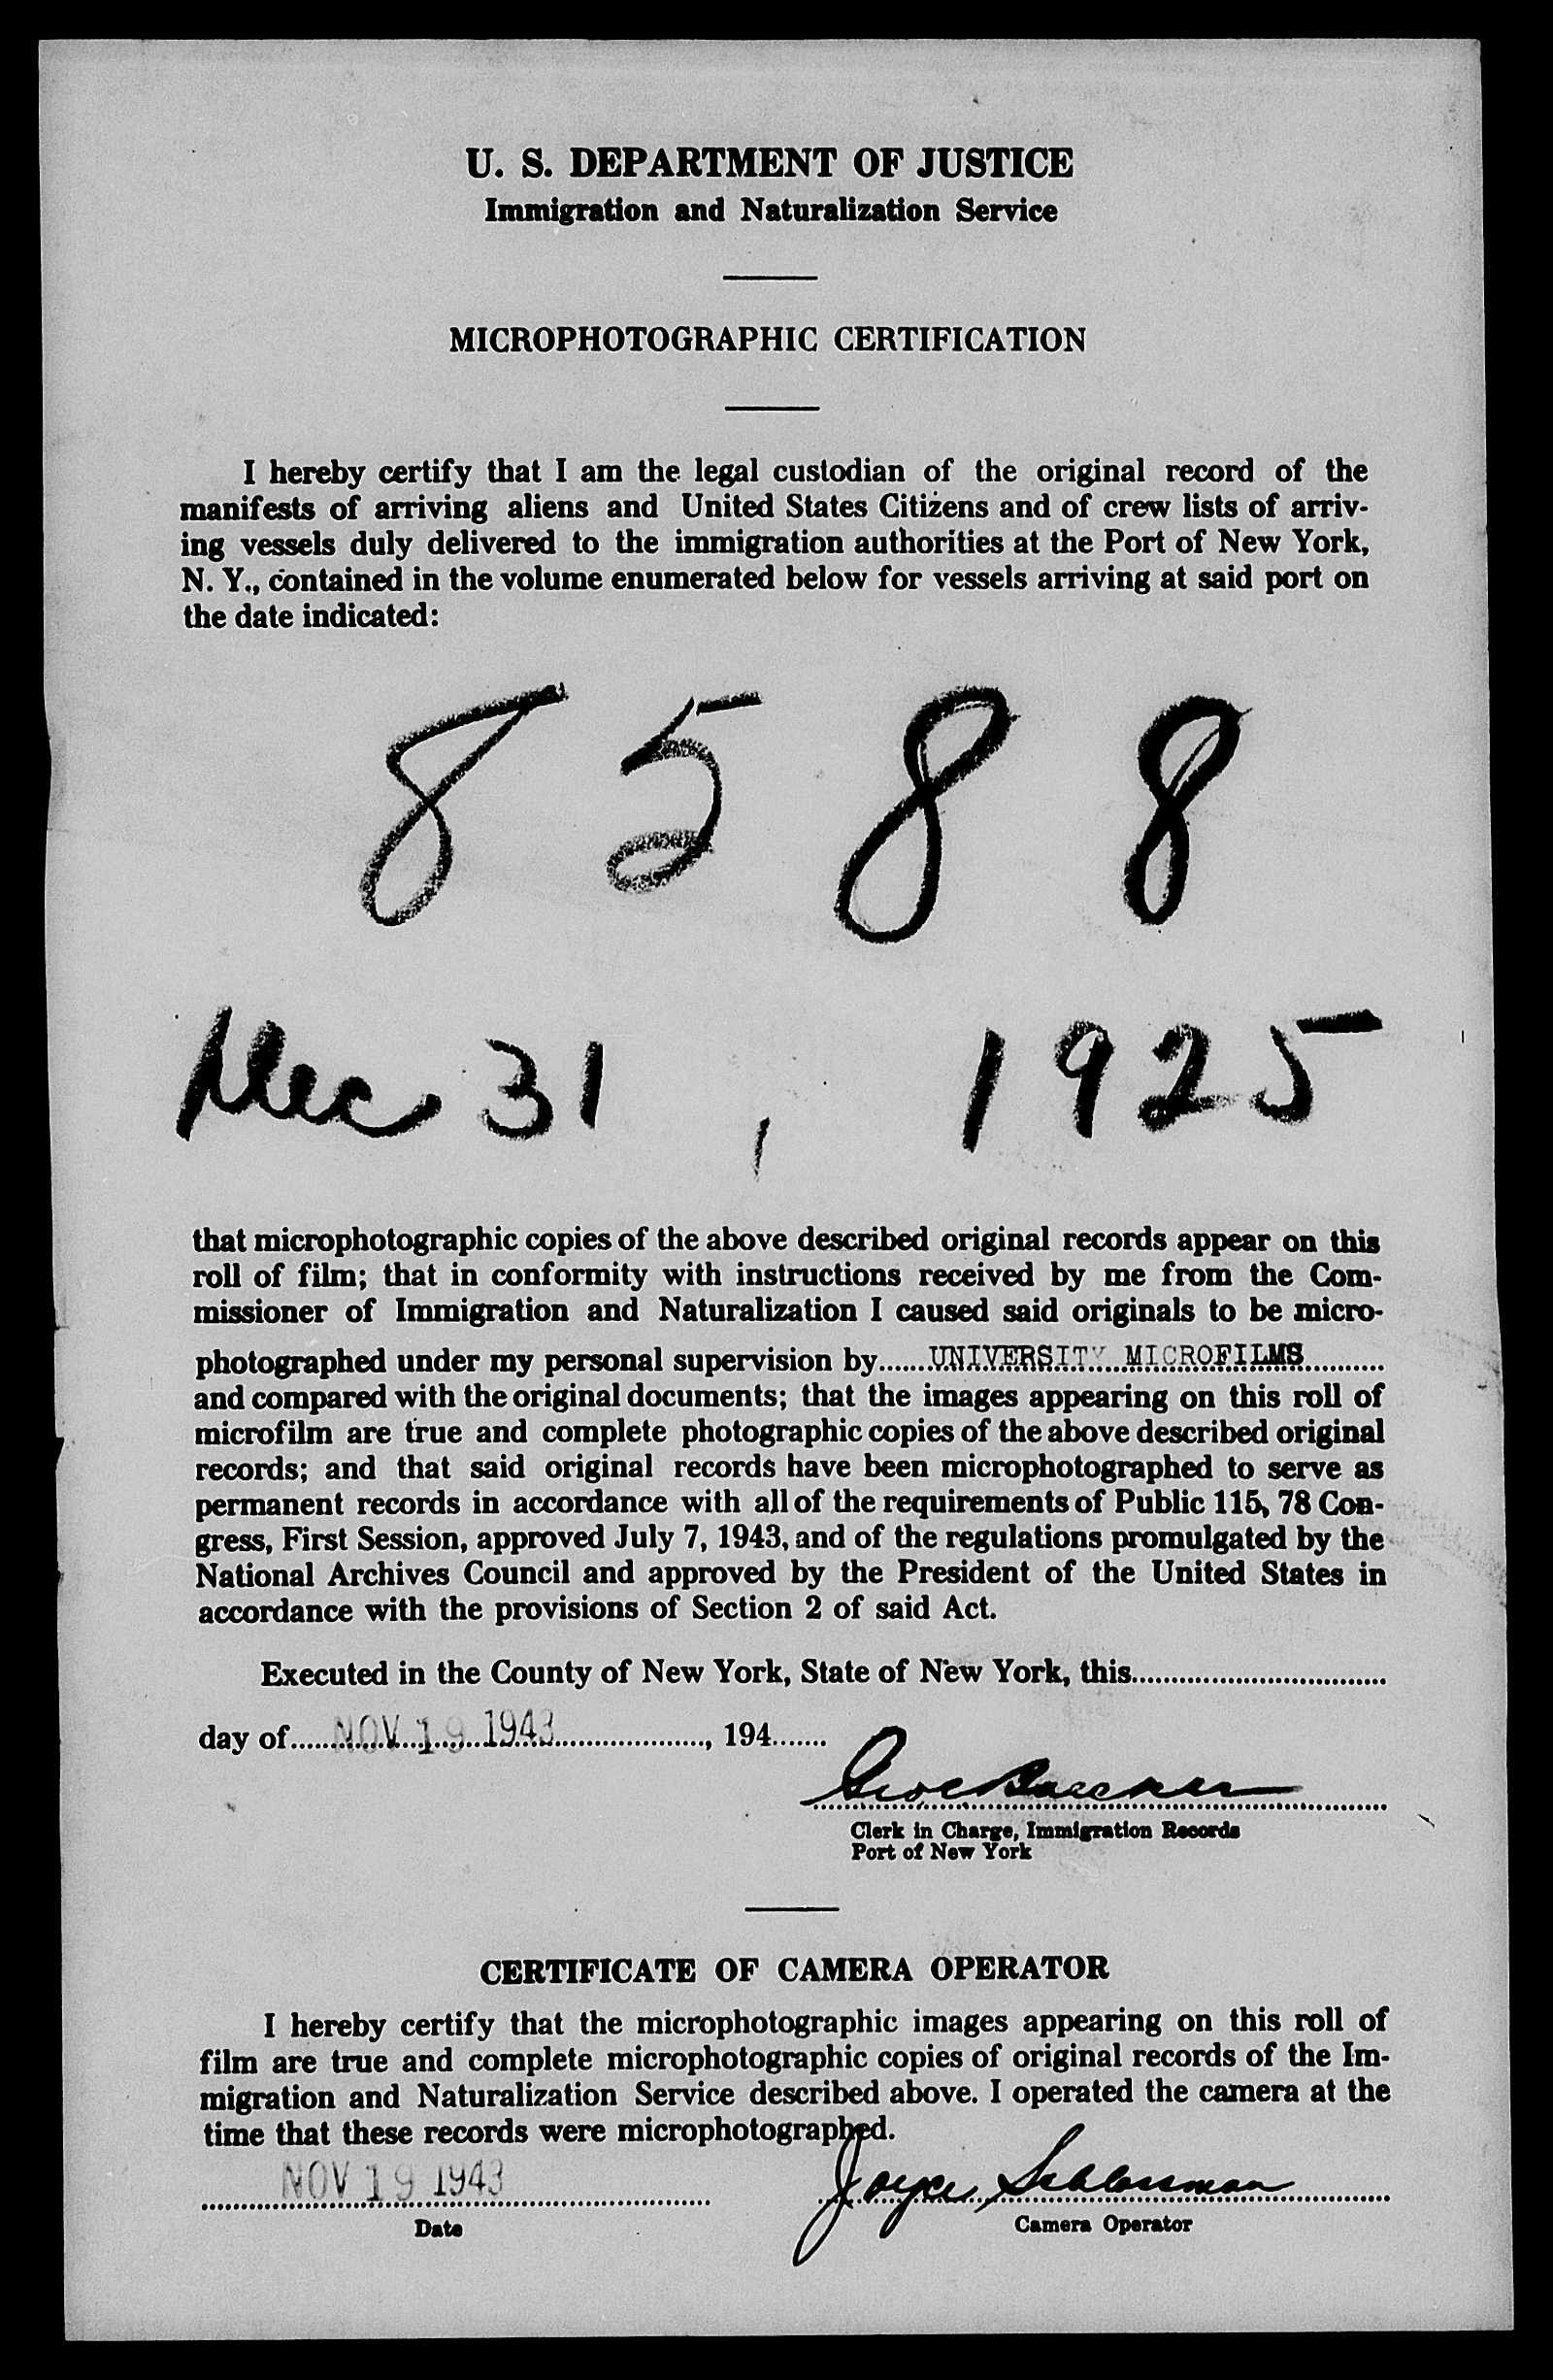 U. S. DEPARTMENT OF JUSTICE
Immigration and Naturalization Service
MICROPHOTOGRAPHIC CERTIFICATION
I hereby certify that I am the legal custodian of the original record of the
manifests of arriving aliens and United States Citizens and of crew lists of arriv-
ing vessels duly delivered to the immigration authorities at the Port of New York,
N. Y., contained in the volume enumerated below for vessels arriving at said port on
the date indicated:
8588
Dec. 31, 1925
that microphotographic copies of the above described original records appear on this
roll of film; that in conformity with instructions received by me from the Com-
missioner of Immigration and Naturalization I caused said originals to be micro-
photographed under my personal supervision by......UNIVERSITY MICROFILMS..........
and compared with the original documents; that the images appearing on this roll of
microfilm are true and complete photographic copies of the above described original
records; and that said original records have been microphotographed to serve as
permanent records in accordance with all of the requirements of Public 115, 78 Con-
gress, First Session, approved July 7, 1943, and of the regulations promulgated by the
National Archives Council and approved by the President of the United States in
accordance with the provisions of Section 2 of said Act.
Executed in the County of New York, State of New York, this..................................
day of......NOV 19 1943...................., 194.......
Clerk in Charge, Immigration Records
Port of New York
CERTIFICATE OF CAMERA OPERATOR
I hereby certify that the microphotographic images appearing on this roll of
film are true and complete microphotographic copies of original records of the Im-
migration and Naturalization Service described above. I operated the camera at the
time that these records were microphotographed.
NOV 19 1943 Joyce
Date Camera Operator